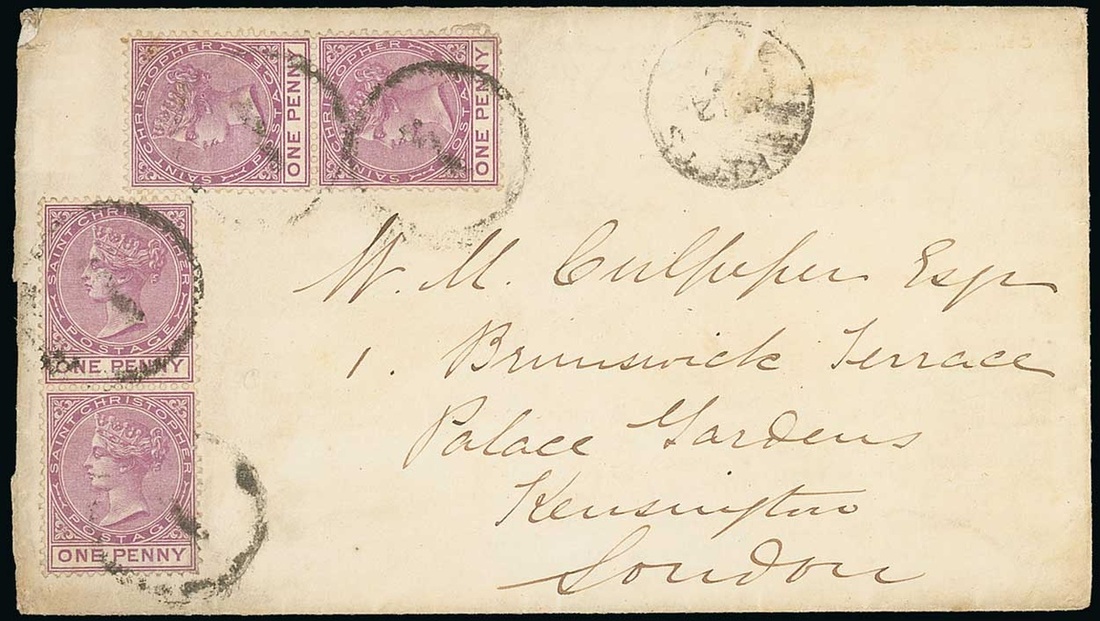 SAINT CHRISTOPHER
POSTAGE
ONE PENNY
SAINT CHRISTOPHER
POSTAGE
ONE PENNY
SAINT CHRISTOPHER
POSTAGE
ONE PENNY
SAINT CHRISTOPHER
POSTAGE
ONE PENNY
W. M. Culpeper Esqr
1. Brunswick Terrace
Palace Gardens
Kensington
London